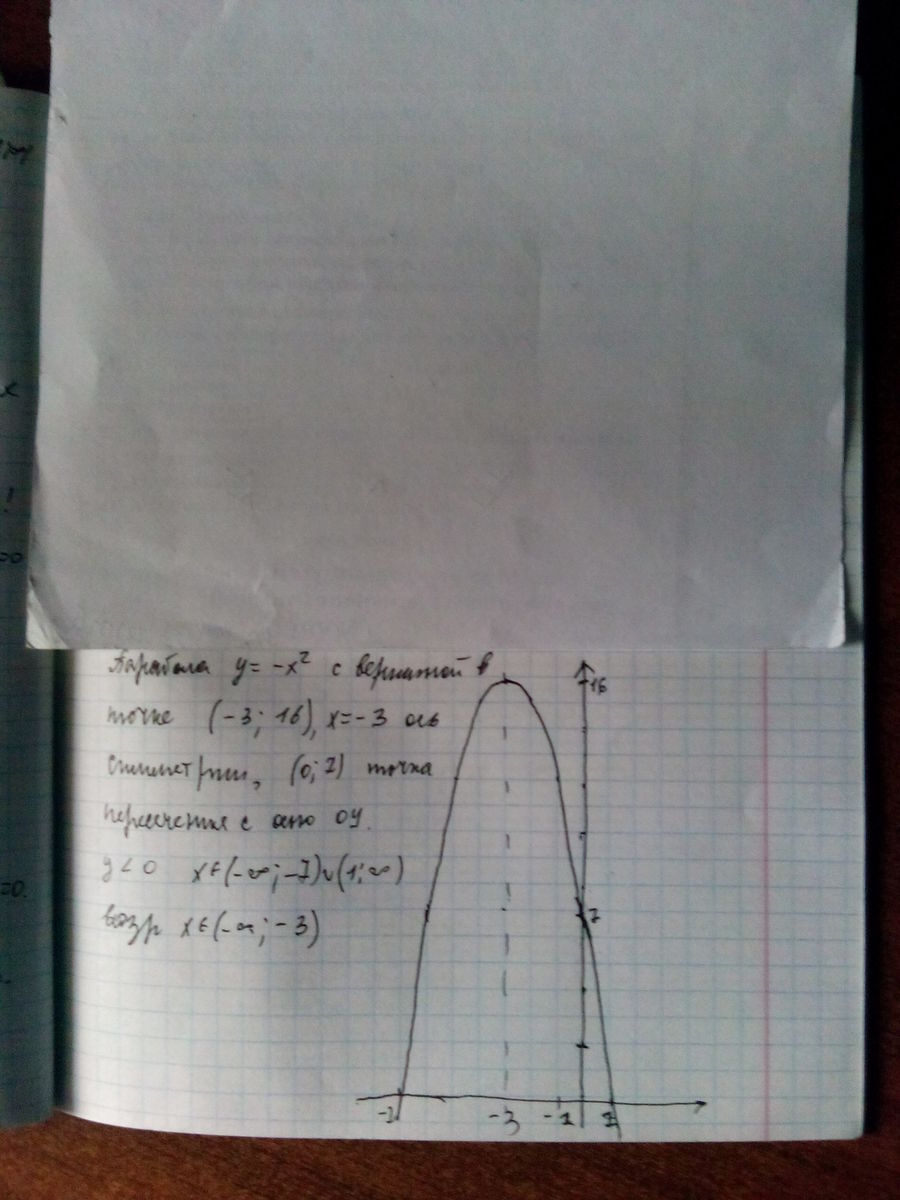 Парабола y = -x² с вершиной в
точке (-3; 16), x = -3 ось
симметрии, (0; 7) точка
пересечения с осью OY.
y < 0 x ∈ (-∞; -7) ∪ (1; ∞)
возр x ∈ (-∞; -3)
16
7
-7
-3
-1
1
=0
=0.
!
x